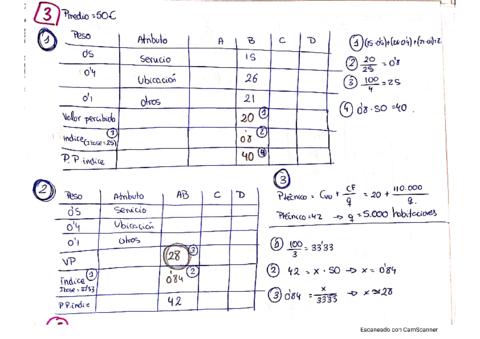 3 Pmedio = 50€
1
Peso Atributo A B C D
0'5 Servicio 15
0'4 Ubicación 26
0'1 otros 21
Valor percibido 20 1
Indice 3 (I base = 25) 0'8 2
P.P. indice 40 4
1 (15·0'5)+(26·0'4)+(21·0'1)=2
2 20/25 = 0'8
3 100/4 = 25
4 0'8 · 50 = 40.
2
Peso Atributo AB C D
0'5 Servicio
0'4 Ubicación
0'1 otros
VP 28 3
Indice 1 0'84 2
P.P. indice 42
3
Ptécnico = Cvu + CF/q = 20 + 110.000/q.
Ptécnico = 42 → q = 5.000 habitaciones
1 100/3 = 33'33
2 42 = x · 50 → x = 0'84
3 0'84 = x/33'33 → x ≈ 28
Escaneado con CamScanner